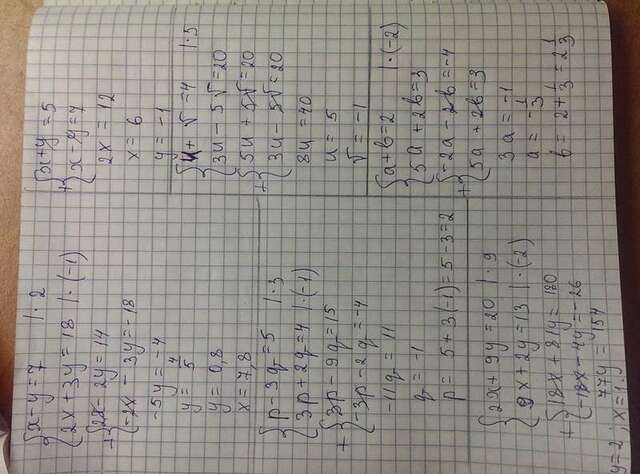 {x-y=7 | ·2
{2x+3y=18 | ·(-1)
+{2x-2y=14
{-2x-3y=-18
-5y=-4
y=4/5
y=0,8
x=7,8
{p-3q=5 | ·3
{3p+2q=4 | ·(-1)
+{3p-9q=15
{-3p-2q=-4
-11q=11
q=-1
p=5+3(-1)=5-3=2
{2x+9y=20 | ·9
{9x+2y=13 | ·(-2)
+{18x+81y=180
{-18x-4y=-26
77y=154
y=2; x=1
{x+y=5
+{x-y=7
2x=12
x=6
y=-1
{u+v=4 | ·5
{3u-5v=20
+{5u+5v=20
{3u-5v=20
8u=40
u=5
v=-1
{a+b=2 | ·(-2)
{5a+2b=3
+{-2a-2b=-4
{5a+2b=3
3a=-1
a=-1/3
b=2+1/3=2 1/3